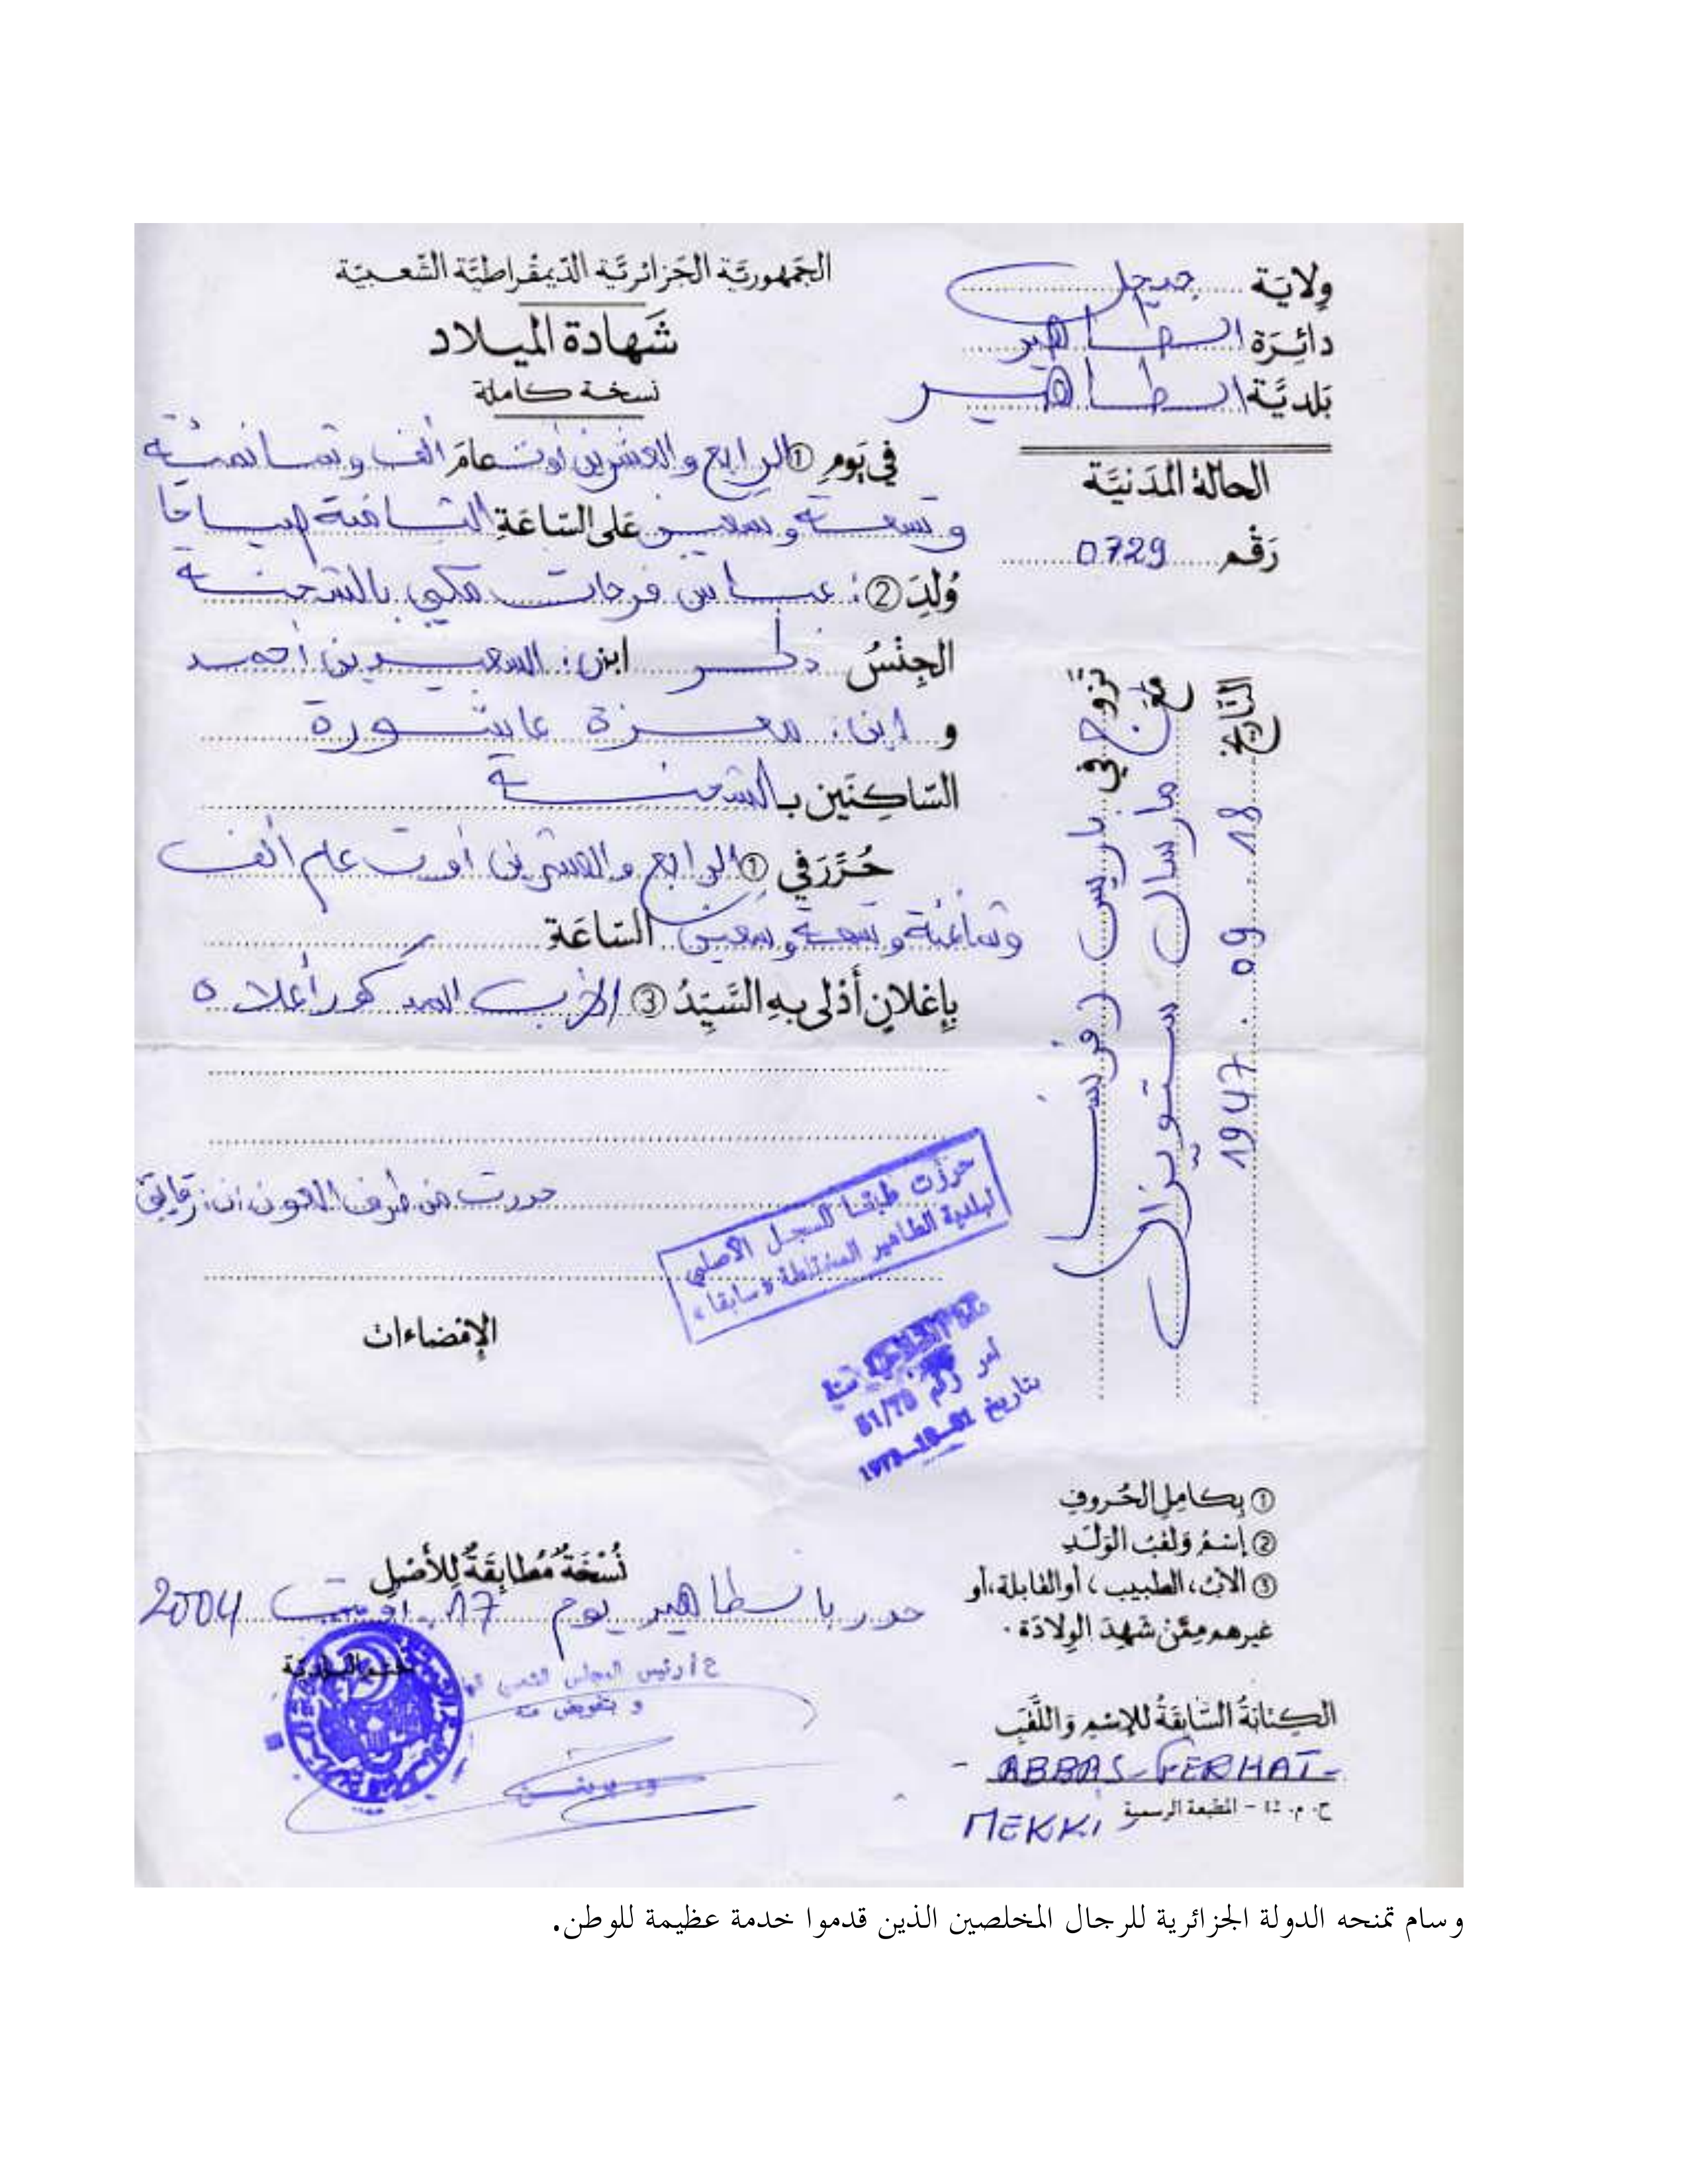 الجمهورية الجزائرية الديمقراطية الشعبية
شهادة الميلاد
نسخة كاملة
ولاية جيجل
دائرة الطاهير
بلدية الطاهير
الحالة المدنية
رقم 0729
في يوم ① الرابع والعشرين أوت عام ألف وثمانمئة
وتسعة وتسعين على الساعة الثامنة صباحا
وُلِدَ ② : عباس فرحات مكي بالشحنة
الجنس ذكر ابن : السعيد بن أحمد
و ابن : معزة عاشورة
الساكنين بالشحنة
حُرِّرَ في ① الرابع والعشرين أوت عام ألف
وثمانمئة وتسعة وتسعين الساعة
بإعلان أدلى به السَّيِّدُ ③ الأب المذكور أعلاه
حررت من طرف العون
حررت طبقا للسجل الأصلي
لبلدية الطاهير المختلطة «سابقا»
أمر رقم
بتاريخ
الإمضاءات
تزوج في باريس (فرنسا)
مع مارسال ستويزال
التاريخ 18 . 09 . 1947
① بكامل الحروف
② إسم ولقب الولد
③ الأب، الطبيب، أو القابلة، أو
غيرهم ممّن شهد الولادة .
نُسْخَةٌ مُطَابِقَةٌ لِلأَصْلِ
حرر بالطاهير يوم 17 أوت 2004
ختم البلدية
ع/أ رئيس المجلس الشعبي
و بتفويض منه
الكتابة السّابقة للإسم واللّقب
- ABBAS - FERHAT -
MEKKI
ح. م. 12 - المطبعة الرسمية
وسام تمنحه الدولة الجزائرية للرجال المخلصين الذين قدموا خدمة عظيمة للوطن.